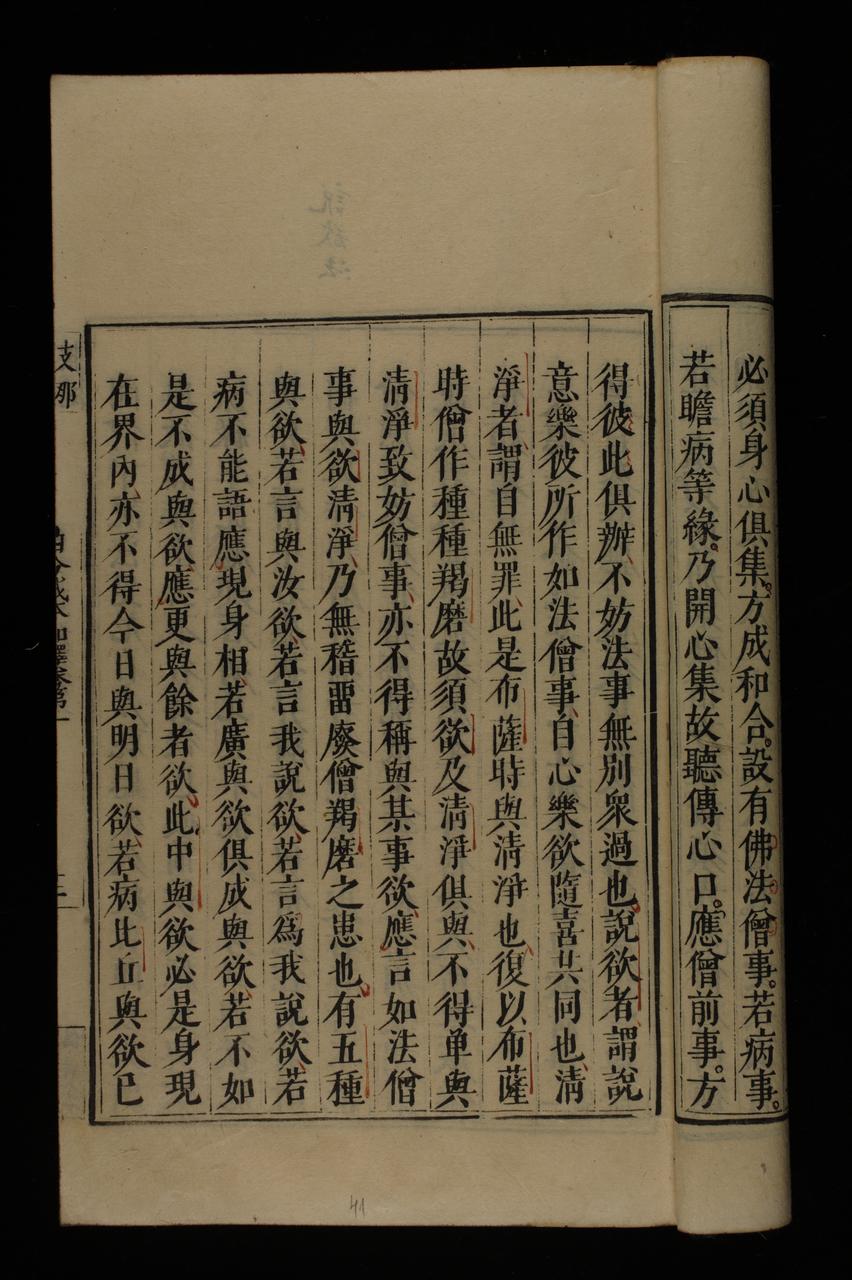 必須身心俱集。方成和合。設有佛法僧事。若病事。
若瞻病等緣。乃開心集故聽傳心口。應僧前事。方
得彼此俱辦、不妨法事無別衆過也。說欲者謂說
意樂彼所作如法僧事、自心樂欲隨喜共同也、淸
淨者、謂自無罪、此是布薩時與淸淨也、復以布薩
時僧作種種羯磨故須欲及淸淨俱與、不得单與
淸淨致妨僧事、亦不得稱與某事欲、應言如法僧
事與欲淸淨、乃無稽畱廢僧羯磨之患也、有五種
與欲、若言與汝欲、若言我說欲、若言爲我說欲、若
病不能語應現身相、若廣與欲俱成與欲、若不如
是不成與欲應更與餘者欲、此中與欲必是身現
在界內、亦不得今日與明日欲、若病比丘與欲已
支那